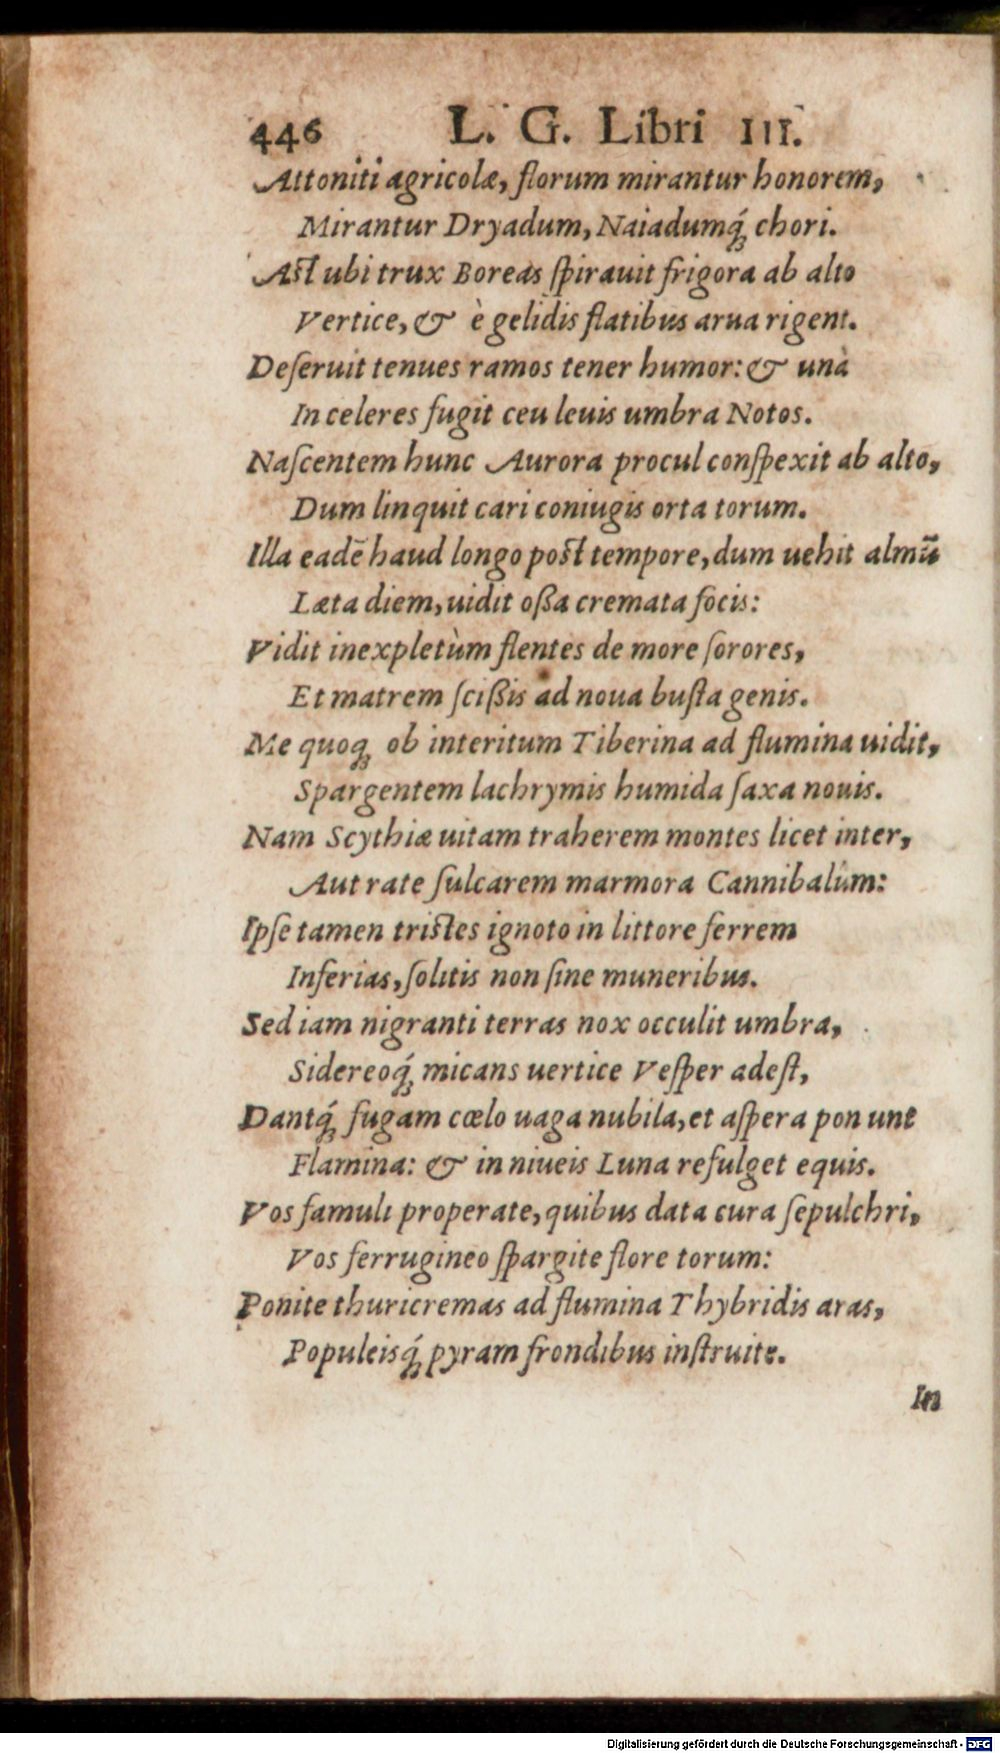 446 L. G. Libri III.
Attoniti agricolæ, florum mirantur honorem,
Mirantur Dryadum, Naiadumq́ꝫ chori.
Ast ubi trux Boreas spirauit frigora ab alto
Vertice, & è gelidis flatibus arua rigent.
Deseruit tenues ramos tener humor: & unà
In celeres fugit ceu leuis umbra Notos.
Nascentem hunc Aurora procul conspexit ab alto,
Dum linquit cari coniugis orta torum.
Illa eadē haud longo post tempore, dum uehit almū
Læta diem, uidit oßa cremata focis:
Vidit inexpletùm flentes de more sorores,
Et matrem scißis ad noua busta genis.
Me quoqꝫ ob interitum Tiberina ad flumina uidit,
Spargentem lachrymis humida saxa nouis.
Nam Scythiæ uitam traherem montes licet inter,
Aut rate sulcarem marmora Cannibalûm:
Ipse tamen tristes ignoto in littore ferrem
Inferias, solitis non sine muneribus.
Sed iam nigranti terras nox occulit umbra,
Sidereoq́ꝫ micans uertice Vesper adest,
Dantq́ꝫ fugam cœlo uaga nubila, et aspera ponunt
Flamina: & in niueis Luna refulget equis.
Vos famuli properate, quibus data cura sepulchri,
Vos ferrugineo spargite flore torum:
Ponite thuricremas ad flumina Thybridis aras,
Populeisq́ꝫ pyram frondibus instruite.
In
Digitalisierung gefördert durch die Deutsche Forschungsgemeinschaft - DFG